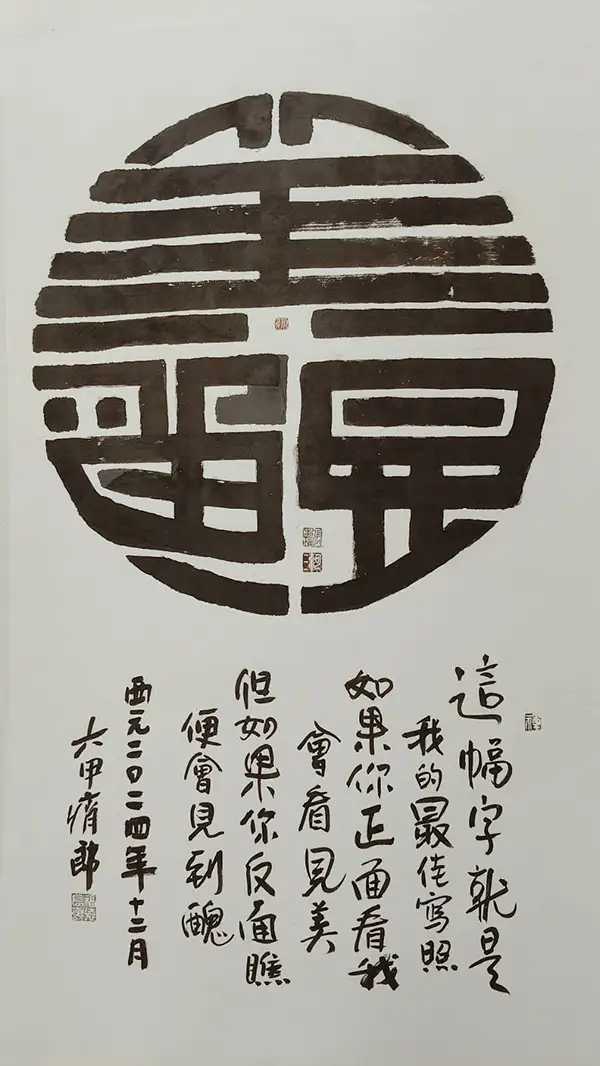 這幅字就是
我的最佳寫照
如果你正面看我
會看見美
但如果你反面瞧
便會見到醜
西元二〇二四年十二月
六甲情郎